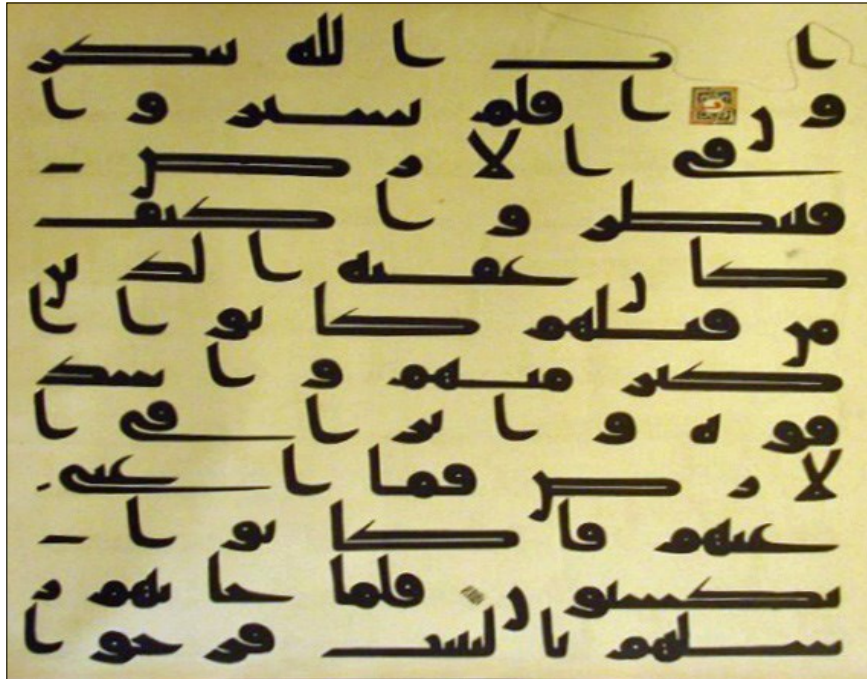 ا يت ا لله تنكر
و ن ا فلم يسير و ا
في ا لا ر ض
فينظر و ا كيف
كا ن عقبه ا لذ ين
من قبلهم كا نو ا ا
كثر منهم و ا شد
قو ه و ا ثا ر ا في ا
لا ر ض فما ا غنى
عنهم ما كا نو ا
يكسبو ن فلما جا تهم ر
سلهم با لبينت فر حو ا